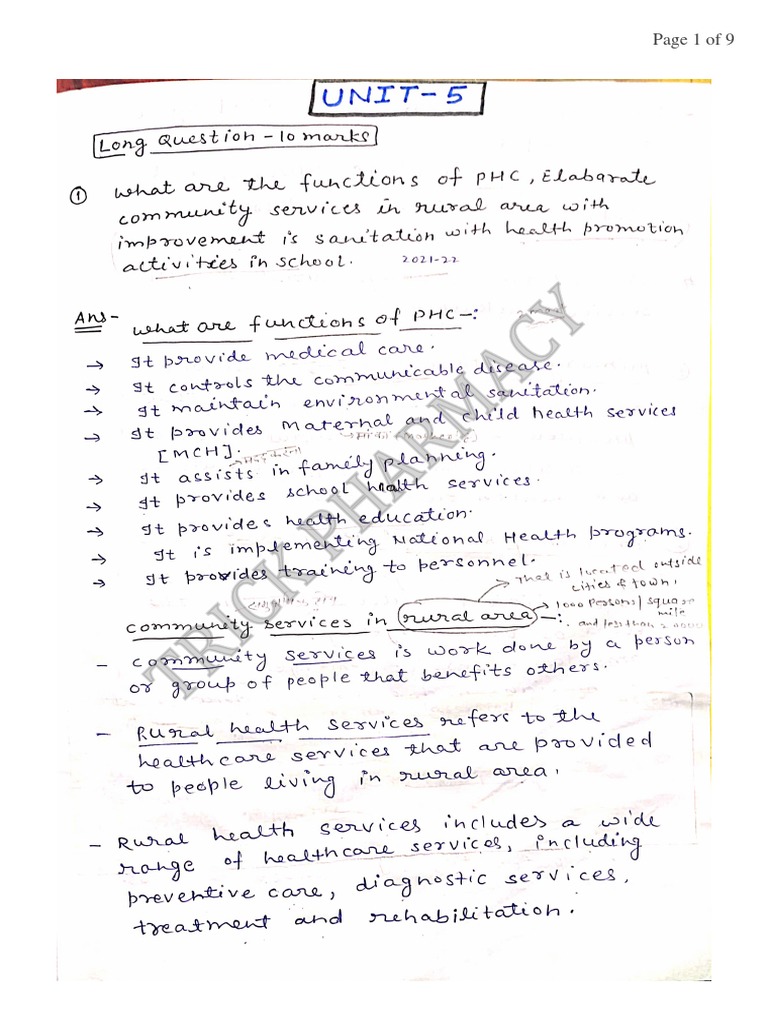 Page 1 of 9
UNIT-5
Long Question - 10 marks
① What are the functions of PHC, Elabarate
community services in rural area with
improvement is sanitation with health promotion
activities in school. 2021-22
Ans- what are functions of PHC-:
→ It provide medical care.
→ It controls the communicable disease.
→ It maintain environmental sanitation.
→ It provides Maternal and child health services
[MCH].
→ It assists in family planning.
→ It provides school health services.
→ It provides health education.
→ It is implementing National Health programs.
→ It provides training to personnel.
→ That is located outside
cities & town.
community services in rural area -:
→ 1000 persons/square
mile
and less than
- community services is work done by a person
or group of people that benefits others.
- Rural health services refers to the
healthcare services that are provided
to people living in rural area.
- Rural health services includes a wide
range of healthcare services, including
preventive care, diagnostic services,
treatment and rehabilitation.
TRICK PHARMACY